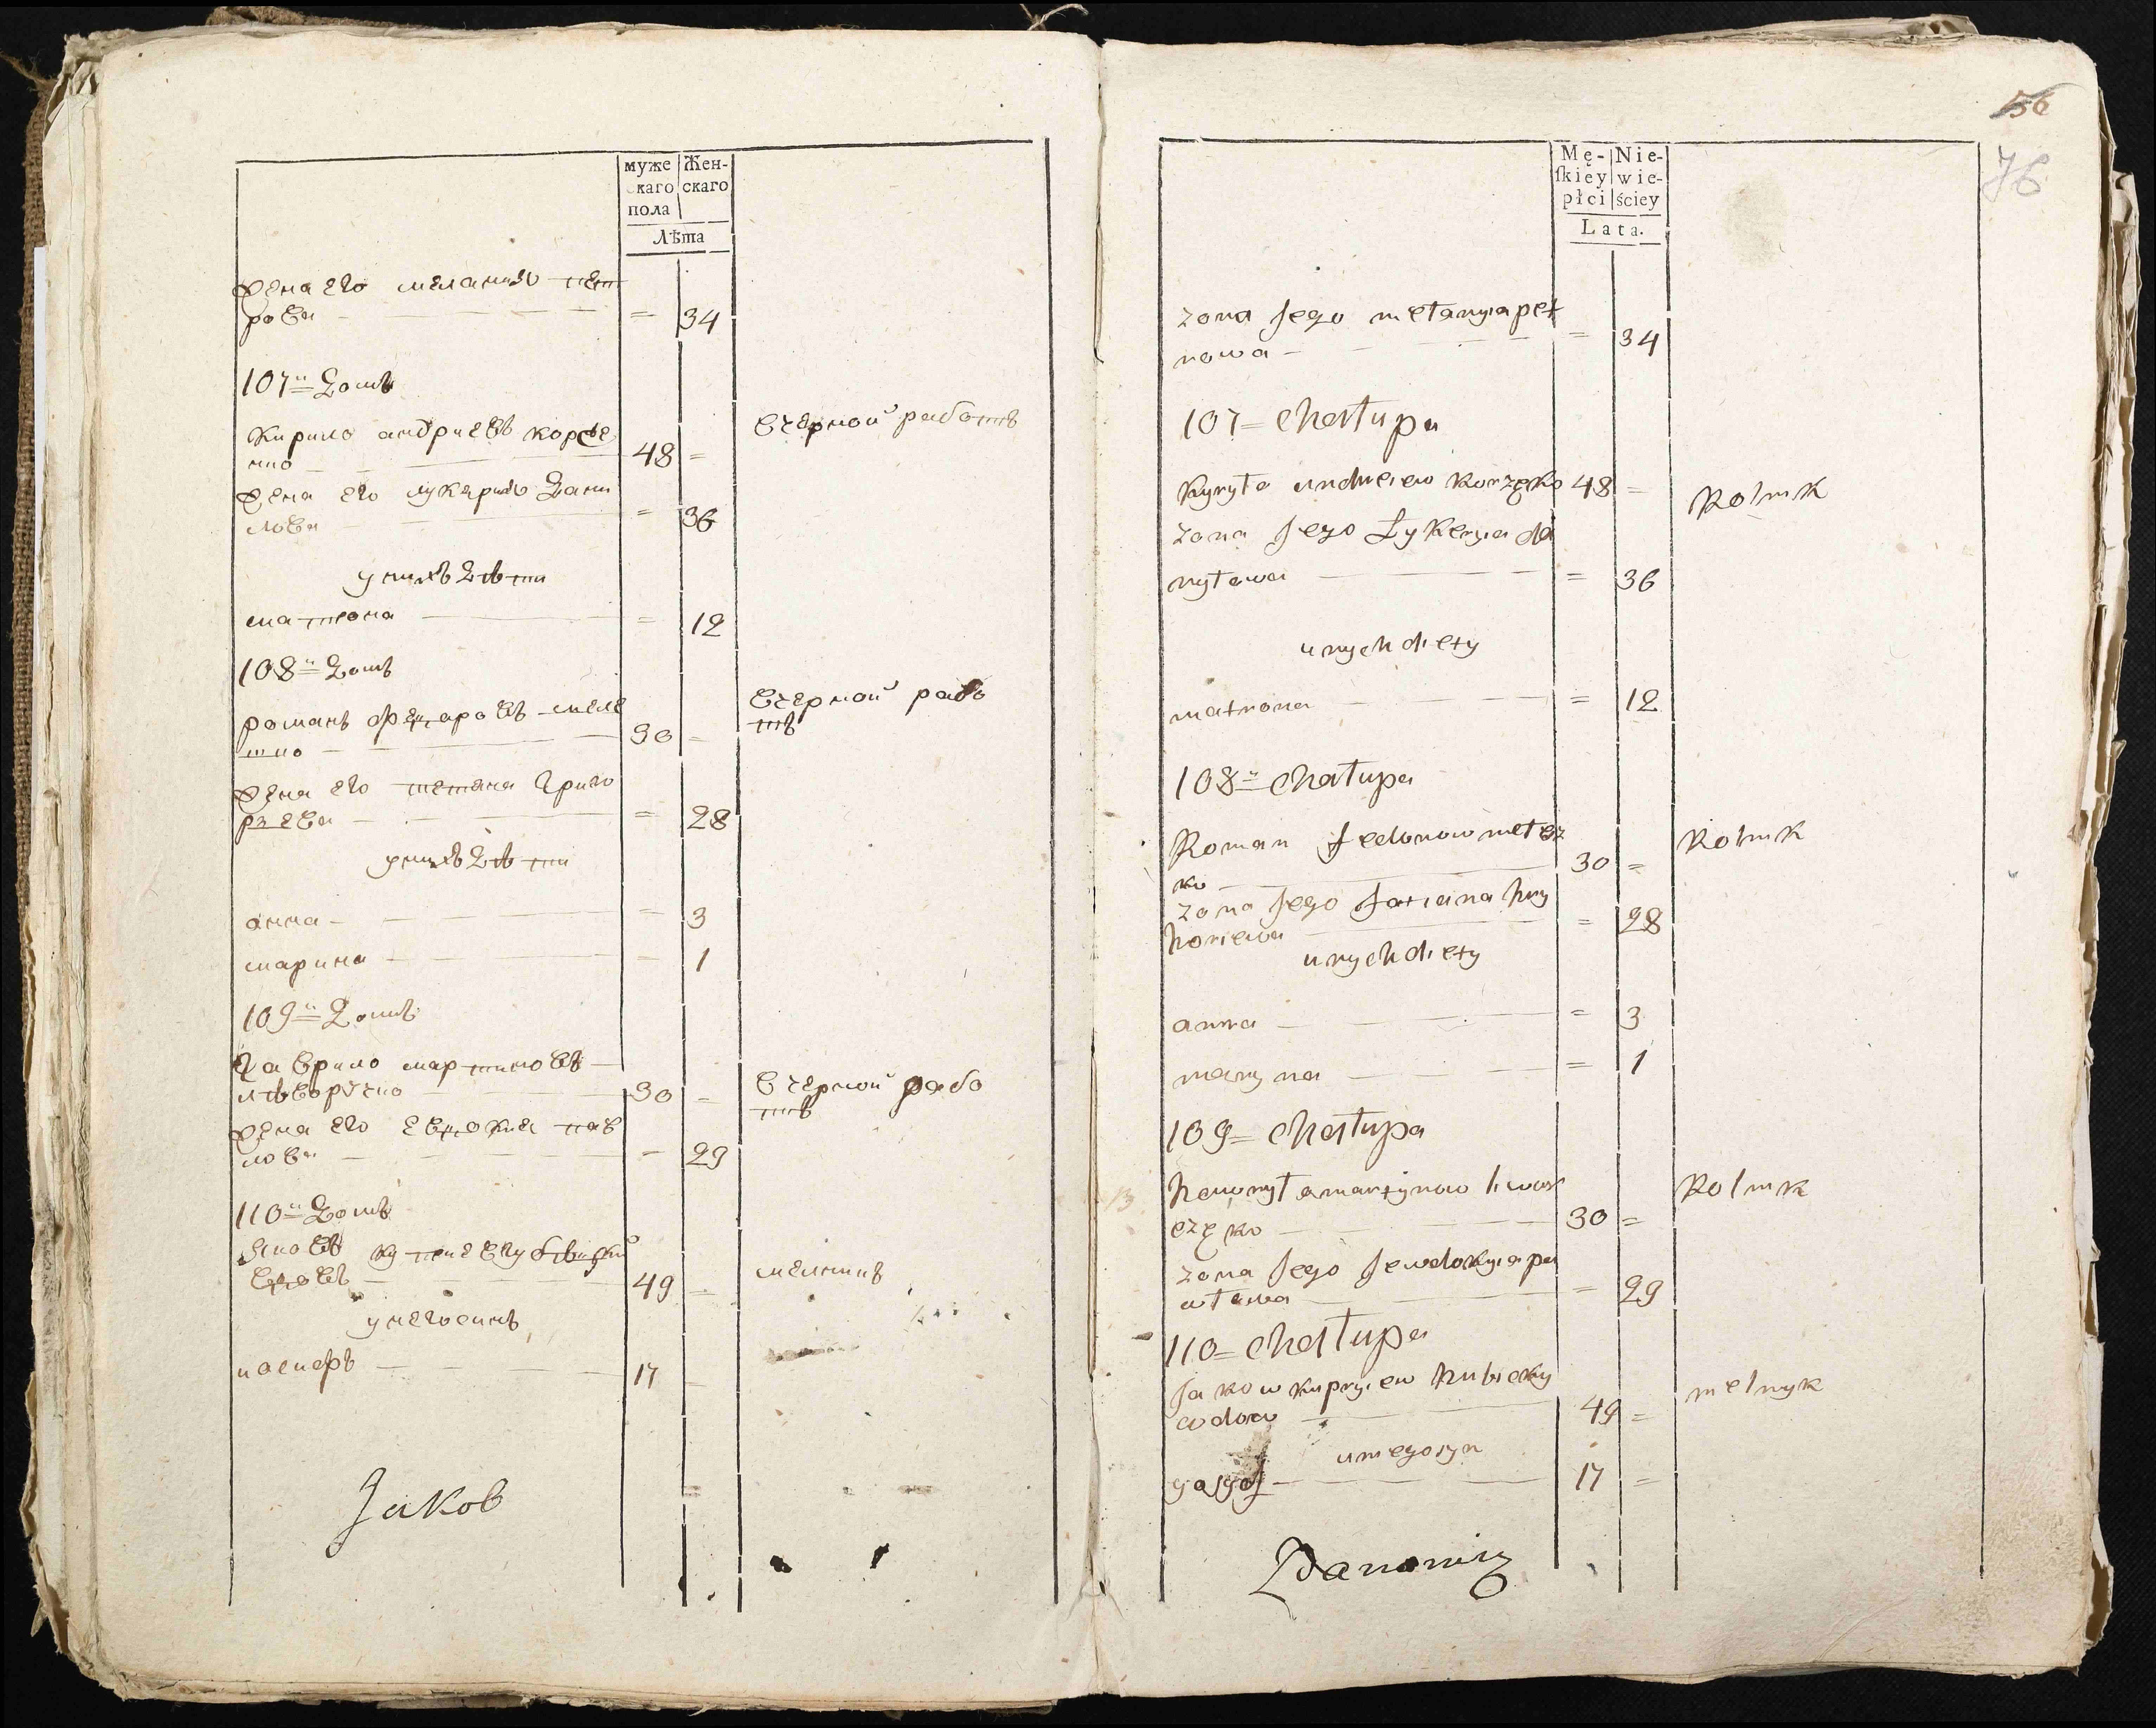 муже Жен-
скаго скаго
пола
Лѣта
жена его мелания пет
рова = 34
107й домъ
кирило андриевъ корже
нко 48 = вчерной работѣ
жена его лукерия дани
лова = 36
унихъ дѣти
матрона = 12
108й домъ
романъ федаровъ меле
шко 30 = вчерной рабо
тѣ
жена его тетяна григо
риева = 28
унихъ дѣти
анна = 3
марина = 1
109й домъ
гаврило мартиновъ
лѣворченко 30 = вчерной рабо
тѣ
жена его евдокия пав
лова = 29
110й домъ
яковъ
вдовъ 49 = мелникъ
унего синъ
17
Jakob
56
76
Mę- Nie-
ſkiey wie-
płci ściey
Lata.
zona Jego mełanyia pet
rowa = 34
107 = Chałupa
Kyryło andreiew Korzęko 48 = Rolnik
zona Jego Łykeryia da
nyłowa = 36
unych diety
matrona = 12
108й Chałupa
Roman Fedorow melesz
ko 30 = Rolnik
zona Jego Tatiana hry
horiewa = 28
unych diety
anna = 3
maryna = 1
109 = Chałupa
hawryło martynow liwor
częko 30 = Rolnik
zona Jego Jewdokyia pa
włowa = 29
110 = Chałupa
Jakow kupryiew hubicky
wdow 49 = melnyk
uniego syn
17 =